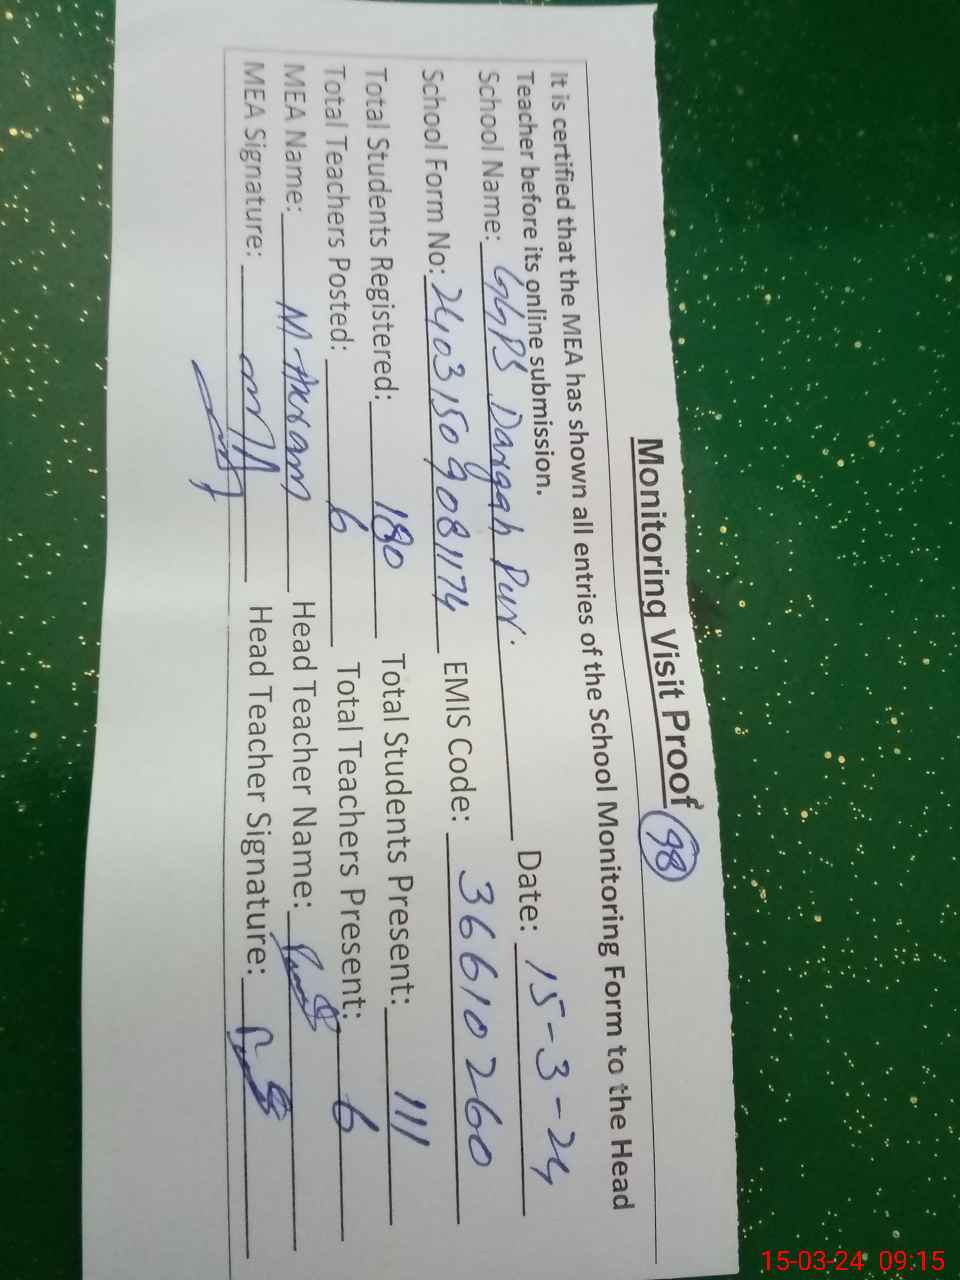 Monitoring Visit Proof 98
It is certified that the MEA has shown all entries of the School Monitoring Form to the Head
Teacher before its online submission.
School Name: GGPS Dargah Pur. Date: 15-3-24
School Form No: 24031509081174 EMIS Code: 36610260
Total Students Registered: 180 Total Students Present: 111
Total Teachers Posted: 6 Total Teachers Present: 6
MEA Name: M. Akram Head Teacher Name:
MEA Signature: Head Teacher Signature:
15-03-24 09:15